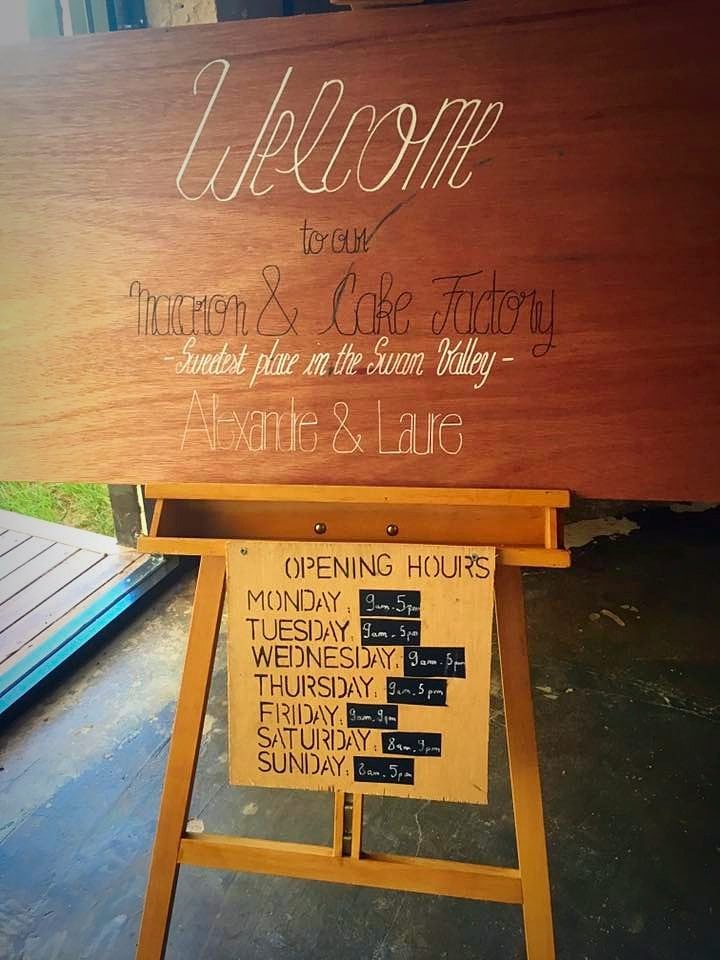 Welcome
to our
Macaron & Cake Factory
- Sweetest place in the Swan Valley -
Alexandre & Laure
OPENING HOURS
MONDAY: 9am-5pm
TUESDAY: 9am-5pm
WEDNESDAY: 9am-5pm
THURSDAY: 9am-5pm
FRIDAY: 9am-9pm
SATURDAY: 8am-9pm
SUNDAY: 8am-5pm